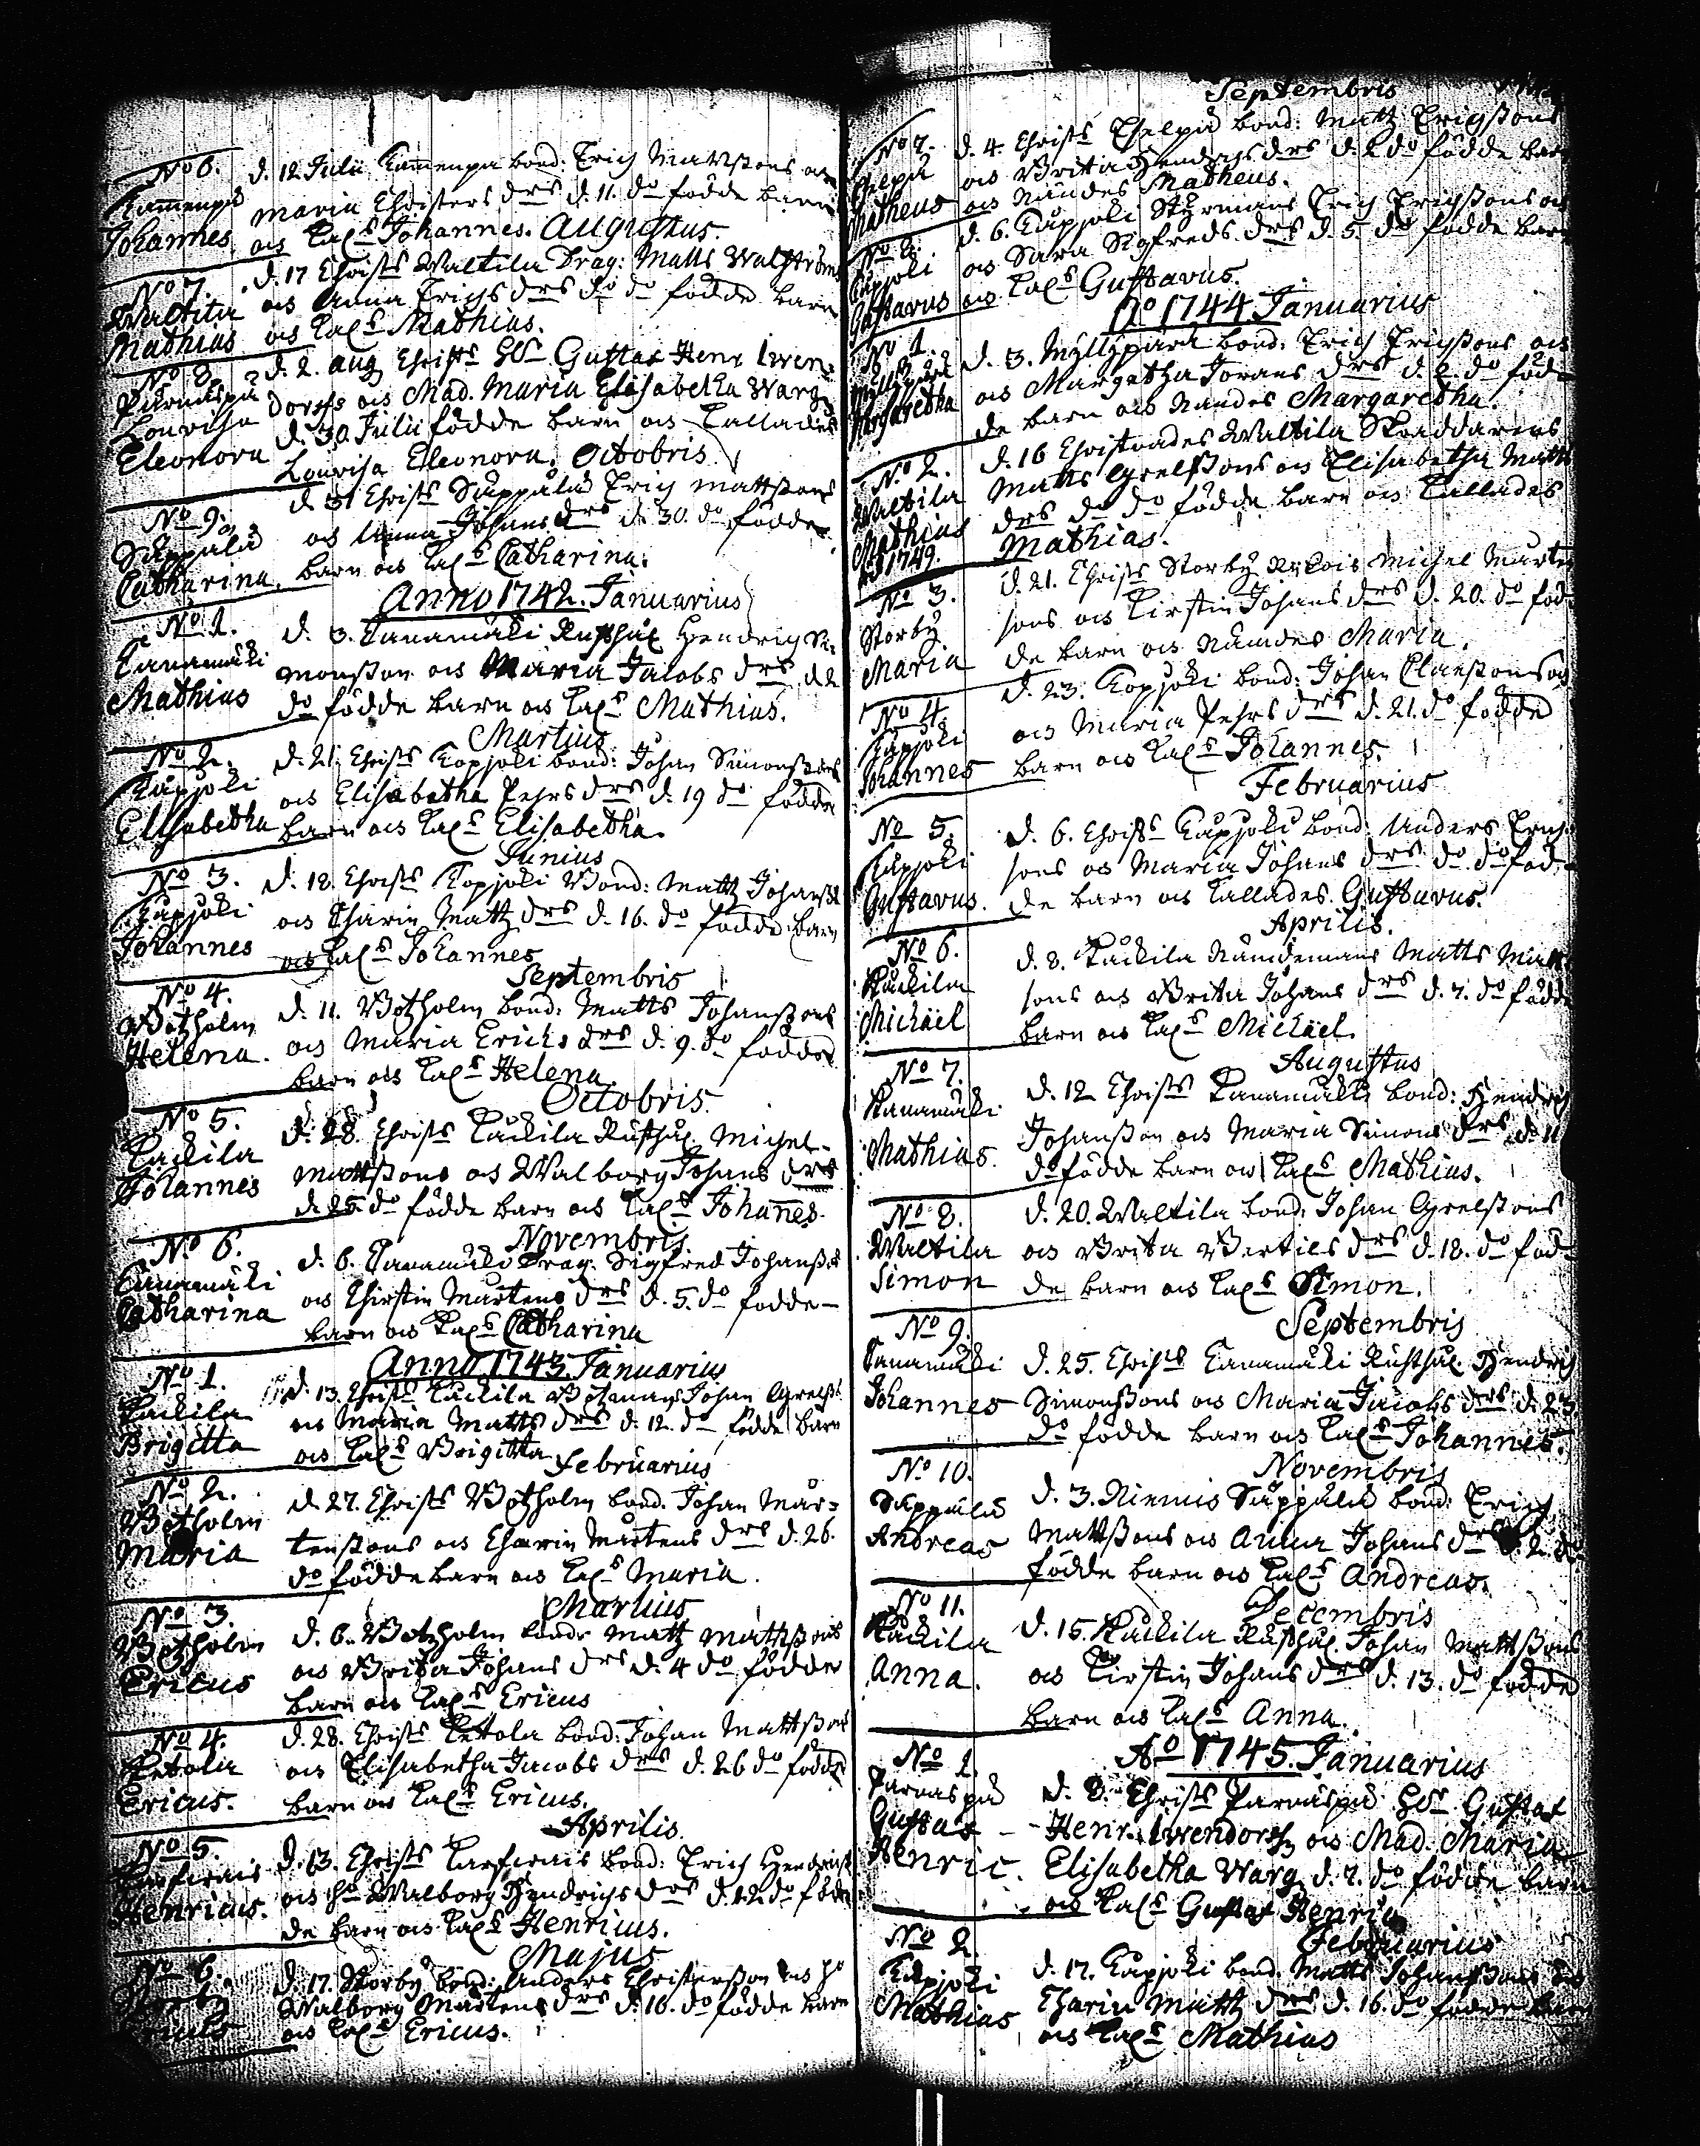 No 6.
Kamenpä
Johannes
d. 12 Julii Kamenpä bond: Erich Mattssons och
Maria Christers drs d. 11. do födde barn
och kals Johannes. Augustus.
No 7.
Waltila
Mathias
d. 17 Christs Waltila Drag: Matts Walström
och Anna Erichs drs do do födde barn
och kals Mathias.
No 8.
Parnaspä
Lovisa
Eleonora
d. 2. aug Christs Hr Gustaf Henr Iwen-
dorff och Mad. Maria Elisabetha Warg
d. 30. Julii födde barn och kallades
Lovisa Eleonora. Octobris
No 9.
Säppälä
Catharina.
d. 31 Christs Säppälä Erich Mattssons
och Anna Johans drs d. 30. do födde
barn och kals Catharina.
Anno 1742. Januarius
No 1.
Tanamäki
Mathias
d. 3. Tanamäki Rusthål Hendrich Si-
monsson och Maria Jacobs drs d. 2
do födde barn och kals Mathias.
Martius
No 2.
Kapjoki
Elisabetha
d. 21. Christs Kopjoki bond: Johan Simonssons
och Elisabetha Pehrs drs d. 19 do födde
barn och kals Elisabetha.
Junius
No 3.
Kapjoki
Johannes
d. 18. Christs Kopjoki Bond: Matts Johanss
och Charin Matts drs d. 16. do födde barn
och kals Johannes
Septembris
No 4.
Botholm
Helena.
d. 11. Botholm bond: Matts Johanssons
och Maria Erichs drs d. 9. do födde
barn och kals Helena
Octobris.
No 5.
Kackila
Johannes
d. 28. Christs Kackila Rusthål Michel
Mattssons och Walborg Johans drs
d. 25. do födde barn och kals Johanes.
Novembris
No 6.
Tanamäki
Catharina
d. 6. Tanamäki Drag. Sigfred Johanss
och Chirstin Mårtens drs d. 5. do födde
barn och kals Catharina
Anno 1743. Januarius
No 1.
Kackila
Brigitta
d. 13. Christs Kackila Johan Grelss
och Maria Matts drs d. 12. do födde barn
och kals Brigitta
Februarius
No 2.
Botholm
Maria
d. 27. Christs Botholm bond. Johan Mår-
tenssons och Charin Mårtens drs d. 26.
do födde barn och kals Maria.
Martius
No 3.
Botholm
Ericus
d. 6. Botholm bond: Matts Mattssons
och Brita Johans drs d. 4 do födde
barn och kals Ericus
No 4.
Ketola
Ericus.
d. 28. Christs Ketola bond: Johan Mattssons
och Elisabetha Jacobs drs d. 26 do födde
barn och kals Ericus.
Aprilis.
No 5.
Henricus.
d. 13. Christs bond: Erich Hendrichss
och ho Walborg Hendrichs drs d. 12 do föd-
de barn och kals Henricus.
Majus
No 6.
Storby
Ericus
d. 17. Storby bond: Anders Christersson och ho
Walborg Mårtens drs d. 16. do födde barn
och kals Ericus.
Septembris
No 7.
Matheus
d. 4. Christs bond: Matts Erichssons
och Brita Hendrichs drs d. 2 do födde barn
och nämdes Matheus.
No 8.
Kapjoki
Gustavus
d. 6. Kapjoki Styrmans Erich Erichssons och
och Sara Sigfreds drs d. 5. do födde barn
och kals Gustavus.
Ao 1744 Januarius
No 1.
Myllypärä
Margaretha
d. 3. Myllypärä bond: Erich Erichssons och
och Margetha Jorans drs d. 2. do föd-
de barn och nämdes Margaretha.
No 2.
Waltila
Mathias
1749.
d. 16 Christnades Waltila Skräddarens
Matts Grelssons och Elisabetha Matts
drs do do födde barn och kallades
Mathias.
No 3.
Storby
Maria
d. 21. Christs Storby Michel Mårten
sons och Kirstin Johans drs d. 20. do föd-
de barn och nämdes Maria.
No 4.
Kapjoki
Johannes
d. 23. Kopjoki bond: Johan Claessons och
och Maria Pehrs drs d. 21. do födde
barn och kals Johannes.
Februarius
No 5.
Kapjoki
Gustavus.
d. 6. Christs Kapjoki bond: Anders Erich-
sons och Maria Johans drs do do föd-
de barn och kallades Gustavus.
Aprilis.
No 6.
Kackila
Michäel
d. 8. Kackila Nämdemans Matts Matts
sons och Brita Johans drs d. 7. do födde
barn och kals Michäel.
Augustus
No 7.
Tanamäki
Mathias.
d. 12 Christs Tanamäki bond: Hendrich
Johansson och Maria Simons drs d. 11
do födde barn och kals Mathias.
No 8.
Waltila
Simon
d. 20. Waltila bond: Johan Grelssons
och Brita Bertils drs d. 18. do föd-
de barn och kals Simon.
Septembris
No 9.
Tanamäki
Johannes
d. 25. Christs Tanamäki Rusthål Hendrich
Simonssons och Maria Jacobs drs d. 23
do födde barn och kals Johannes.
Novembris
No 10.
Säppälä
Andreas
d. 3. Niemis Säppälä bond: Erich
Mattssons och Anna Johans drs d. 2. do
födde barn och kals Andreas.
Decembris
No 11.
Kackila
Anna.
d. 15. Kackila Rusthål Johan Mattssons
och Kirstin Johans drs d. 13. do födde
barn och kals Anna.
Ao 1745. Januarius
No 1.
Parnaspä
Gustaf
Henric.
d. 8. Christs Parnaspä Hr Gustaf
Henr. Iwendorff och Mad. Maria
Elisabetha Warg. d. 7. do födde barn
och kals Gustaf Henric
Februarius
No 2.
Kapjoki
Mathias
d. 17. Kapjoki bond. Matts Johanssons och
Charin Matts drs d. 16. do födde barn
och kals Mathias